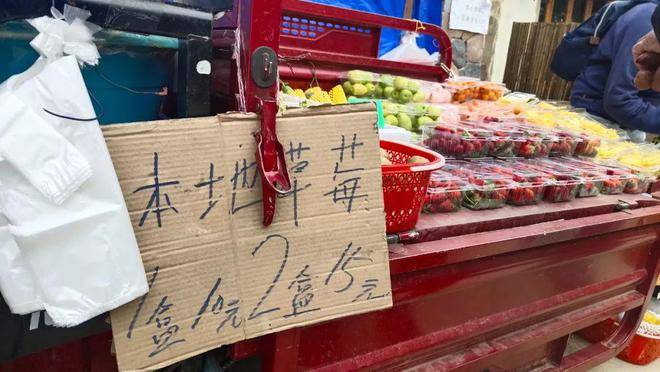 本地草莓
1盒10元2盒15元